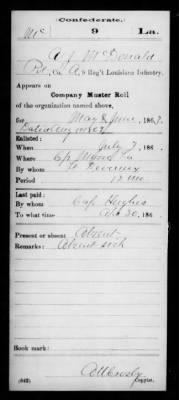 Confederate.
Mc 9 La.
A. J. McDonald
Pvt, Co. A, 9 Reg't Louisiana Infantry.
Appears on
Company Muster Roll
of the organization named above,
for May & June, 1863.
Enlisted:
When July 7, 186 .
Where Cp Moore La
By whom Lt.
Period 12 mo
Last paid:
By whom Cap Hughes
To what time Apr 30, 186 .
Present or absent Absent
Remarks: Absent sick
Book mark:
(642) Copyist.